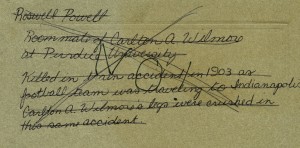 Roswell Powell
Roommate of Carlton A. Wilmore
at Purdue University
Killed in train accident in 1903 as
football team was traveling to Indianapolis
Carlton A. Wilmore's legs were crushed in
this same accident.